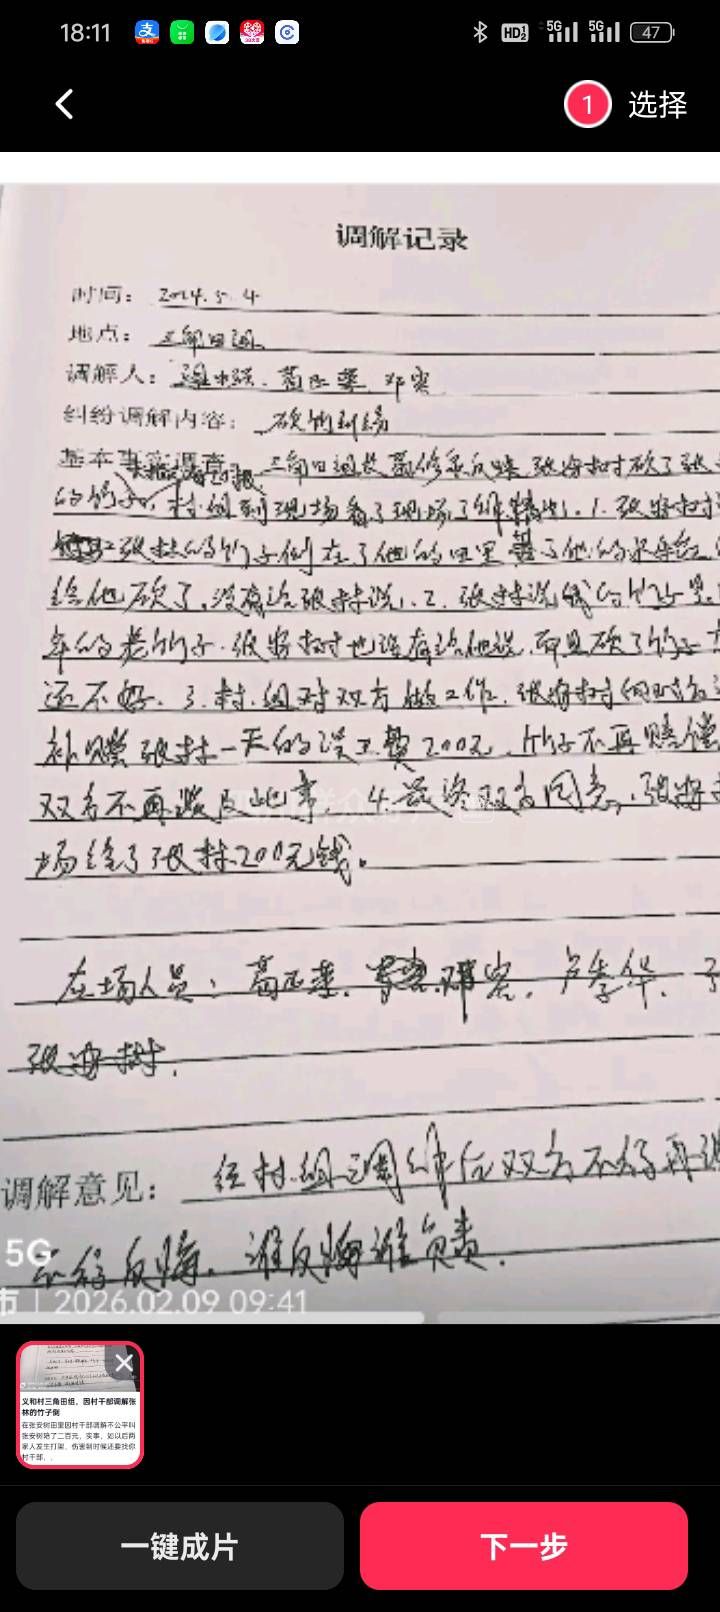 18:11
HD 5G 5G 47
1 选择
调解记录
时间: 2024.5.4
地点: 三角田组
调解人: 葛正莲、邓寒
纠纷调解内容: 砍竹纠纷
基本事实调查 三角田组长葛修 反映,张安树砍了张
的竹子,村组到现场看了现场了解情况,1、张安树
张林的竹子倒在了他的田里 了他的
给他砍了,没有给张林说,2、张林说 的竹子是
年的老竹子,张安树也没有给他说,而且砍了竹子
还不好、3、村、组对双方做工作,张安树
补赔张林一天的误工费200元,竹子不再赔偿
双方不再追及此事,4、最终双方同意,张安
场给了张林200元钱。
在场人员:葛正莲、邓寒,卢季华、
张安树.
调解意见: 经村、组调解后双方不得再
不得反悔,谁反悔谁负责.
5G
市 | 2026.02.09 09:41
义和村三角田组,因村干部调解张
林的竹子倒
在张安树田里因村干部调解不公平叫
张安树赔了二百元,实事,如以后两
家人发生打架,伤害制时候还要找你
村干部、.
一键成片
下一步